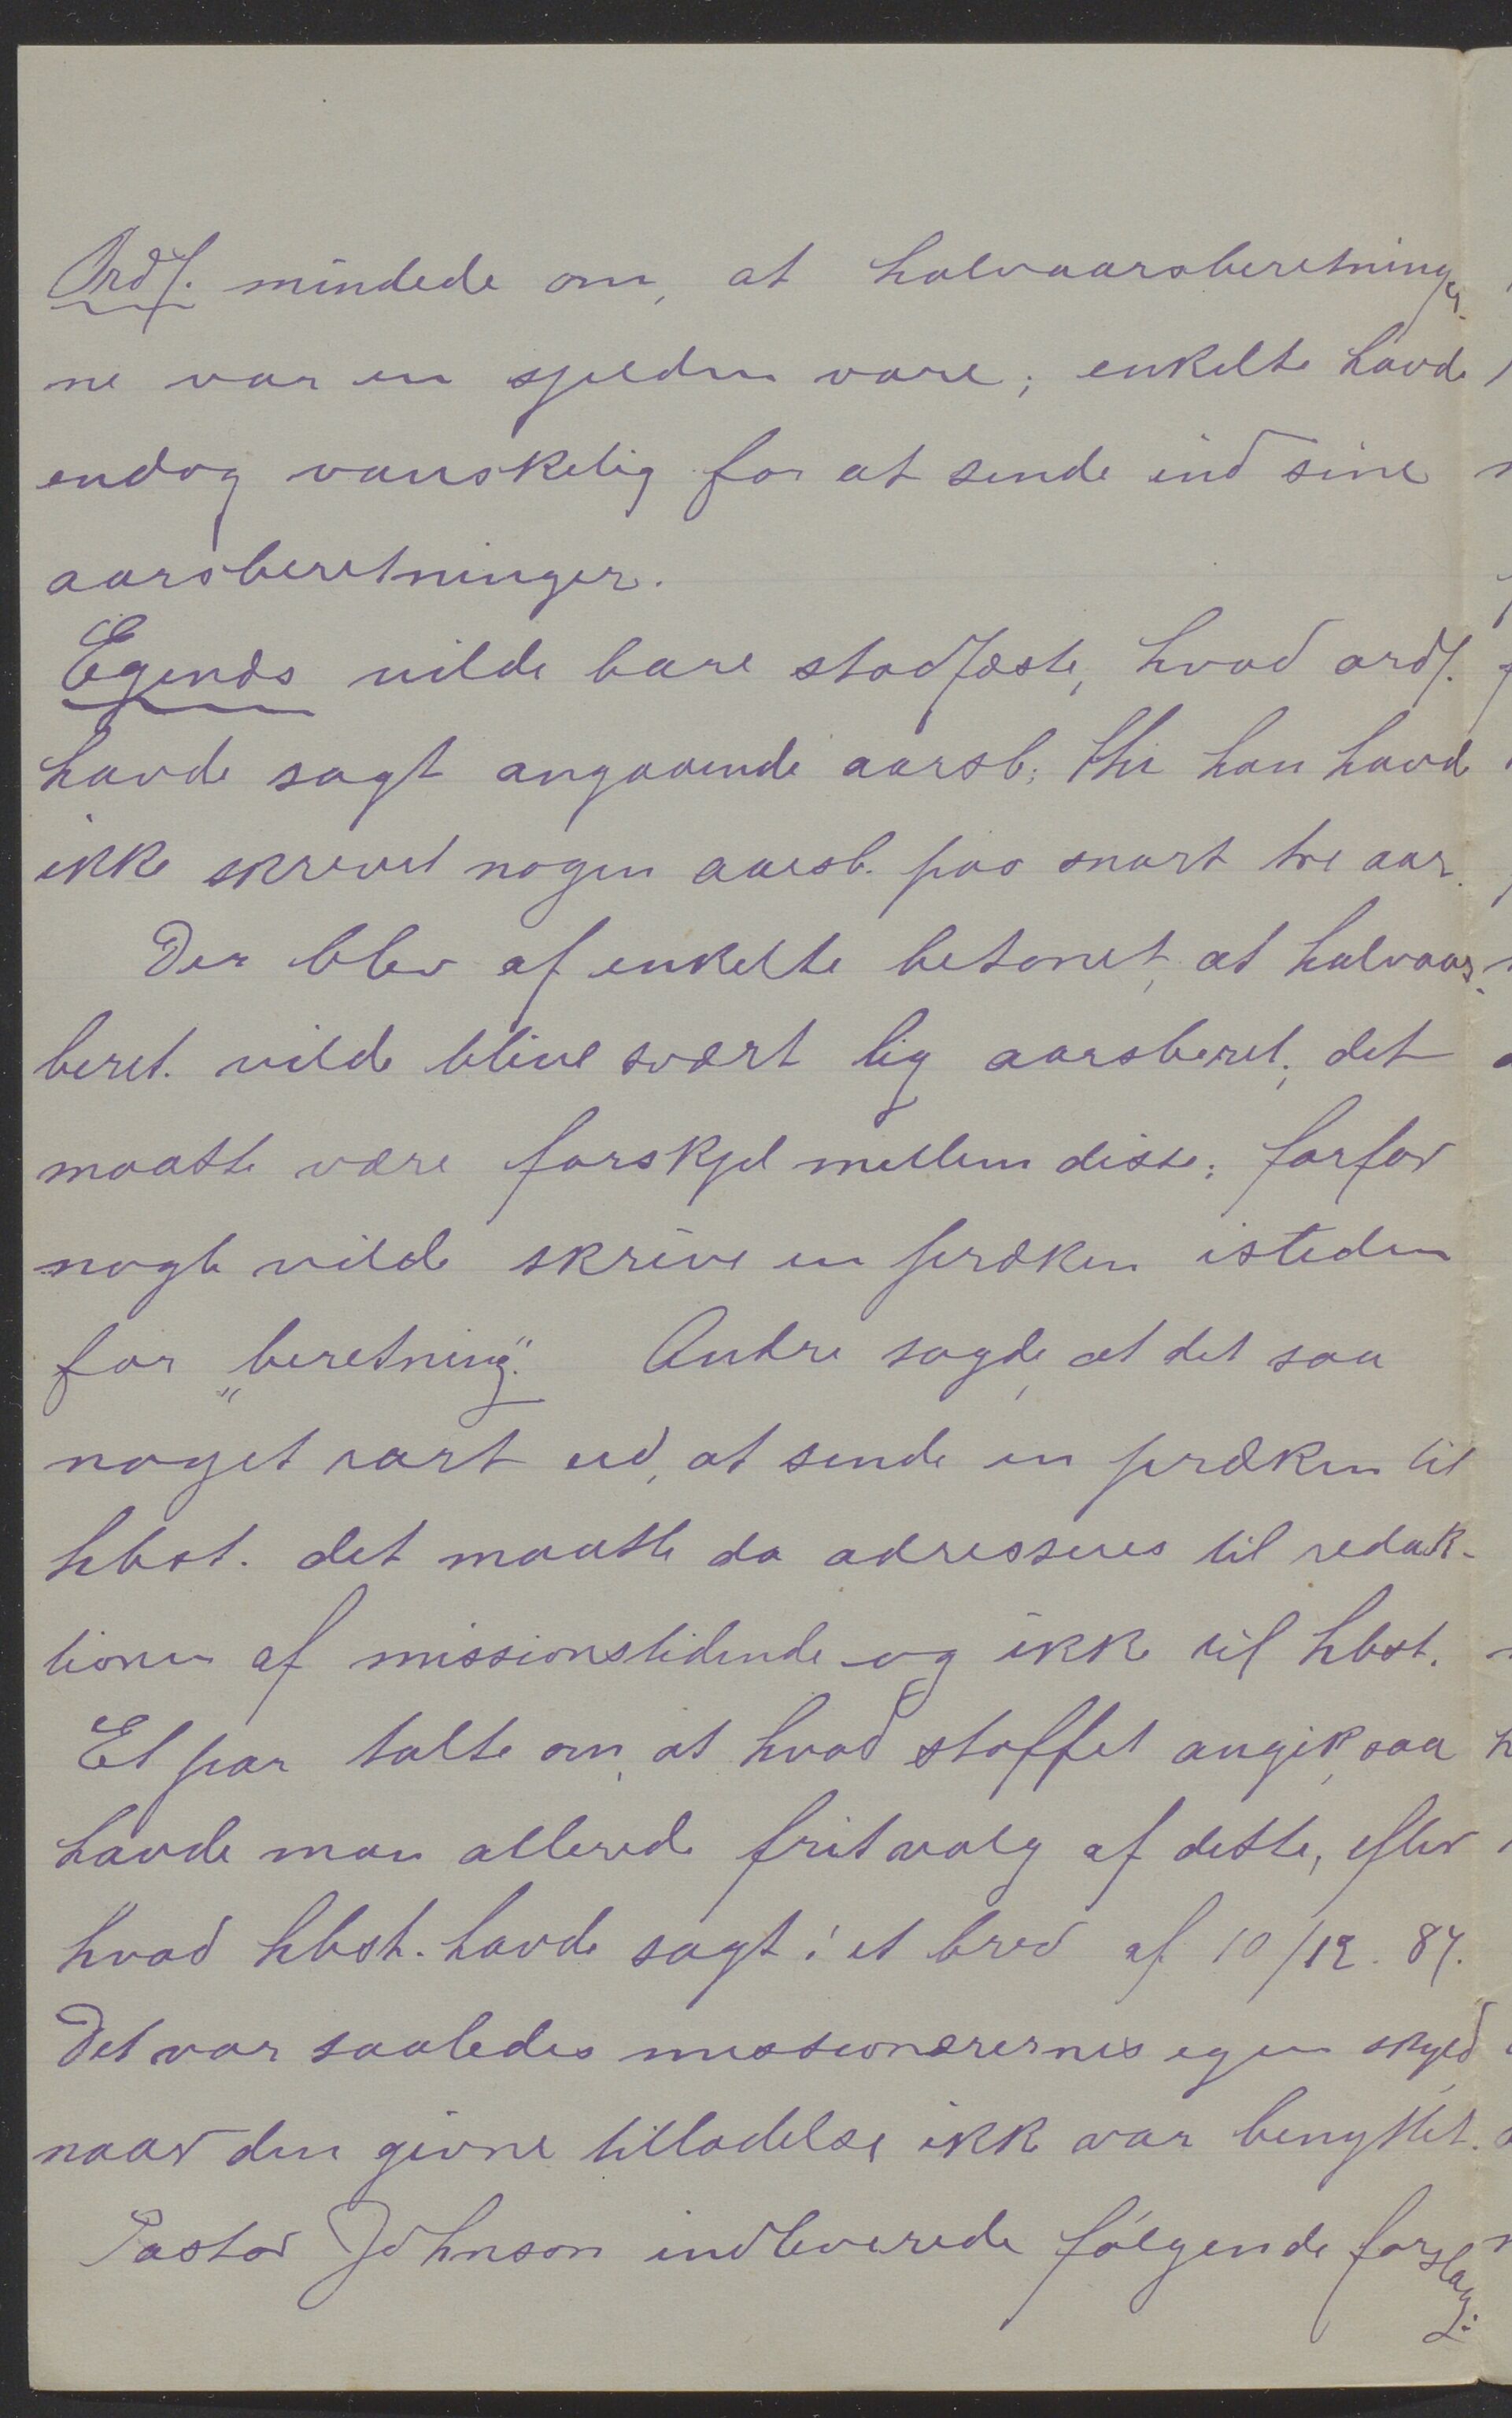 Ordf. mindede om, at halvaarsberetninger-
ne var en sjelden vare; enkelte havde
endog vanskelig for at sende ind sine
aarsberetninger.
Egenæs vilde bare stadfæste, hvad ordf.
havde sagt angaaende aarsb; thi han havde
ikke skrevet nogen aarsb. paa snart tre aar.
Der blev af enkelte betonet, at halvaars-
beret. vilde blive svært lig aarsberet; det
maatte være forskjel mellem disse; forfor
nogle vilde skrive en præken isteden
for "beretning". Andre sagde, at det saa
noget rart ud, at sende en præken til
hbst. det maatte da adresseres til redak-
tionen af missionstidende og ikke til hbst.
Et par talte om, at hvad stoffet angik, saa
havde man allerede frit valg af dette, efter
hvad hbst. havde sagt i et brev af 10/12. 87.
Det var saaledes missionærernes egen skyld
naar den givne tilladelse ikke var benyttet.
Pastor Johnson indleverede følgende forslag: